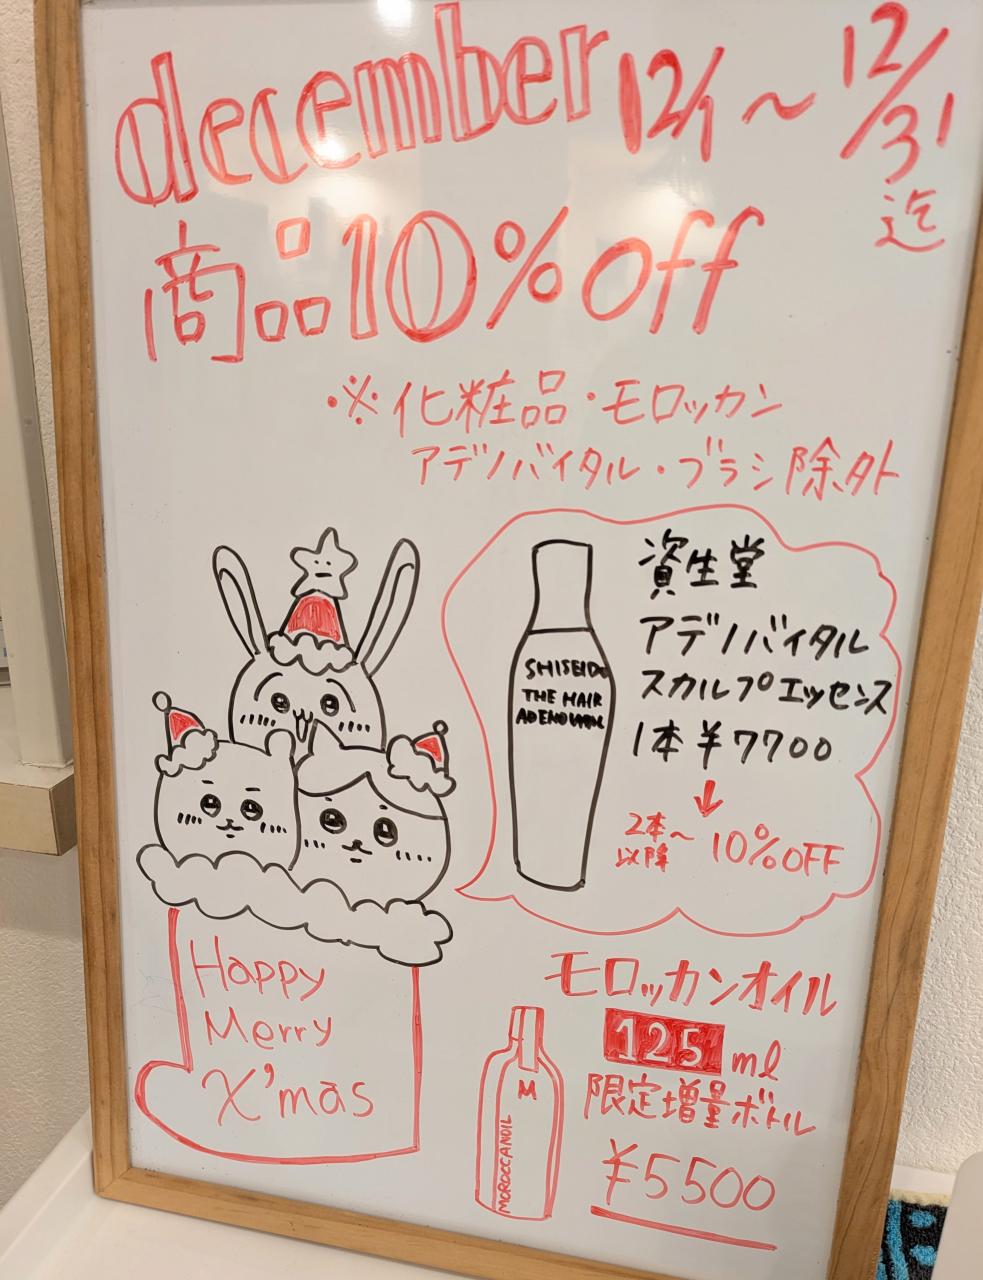 december 12/1 ~ 12/31迄
商品10%off
・※化粧品・モロッカン
アデノバイタル・ブラシ除外
資生堂
アデノバイタル
スカルプエッセンス
1本¥7700
↓
2本~
以降
10%OFF
SHISEIDO
THE HAIR
ADENOVITAL
Happy
Merry
X'mas
モロッカンオイル
125ml
限定増量ボトル
¥5500
M
MOROCCANOIL